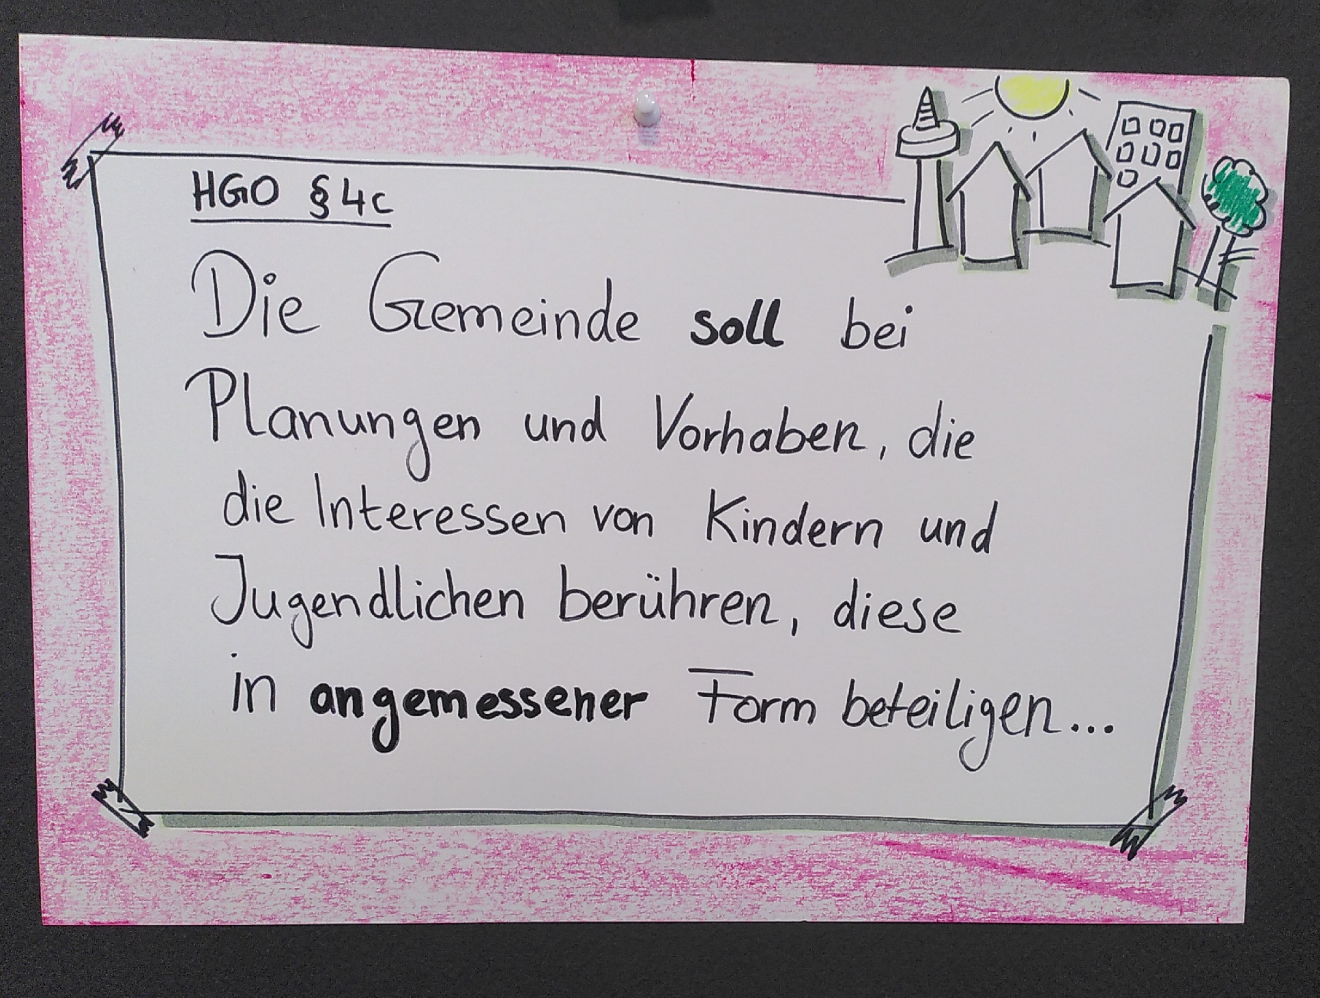 HGO §4c
Die Gemeinde soll bei
Planungen und Vorhaben, die
die Interessen von Kindern und
Jugendlichen berühren, diese
in angemessener Form beteiligen...